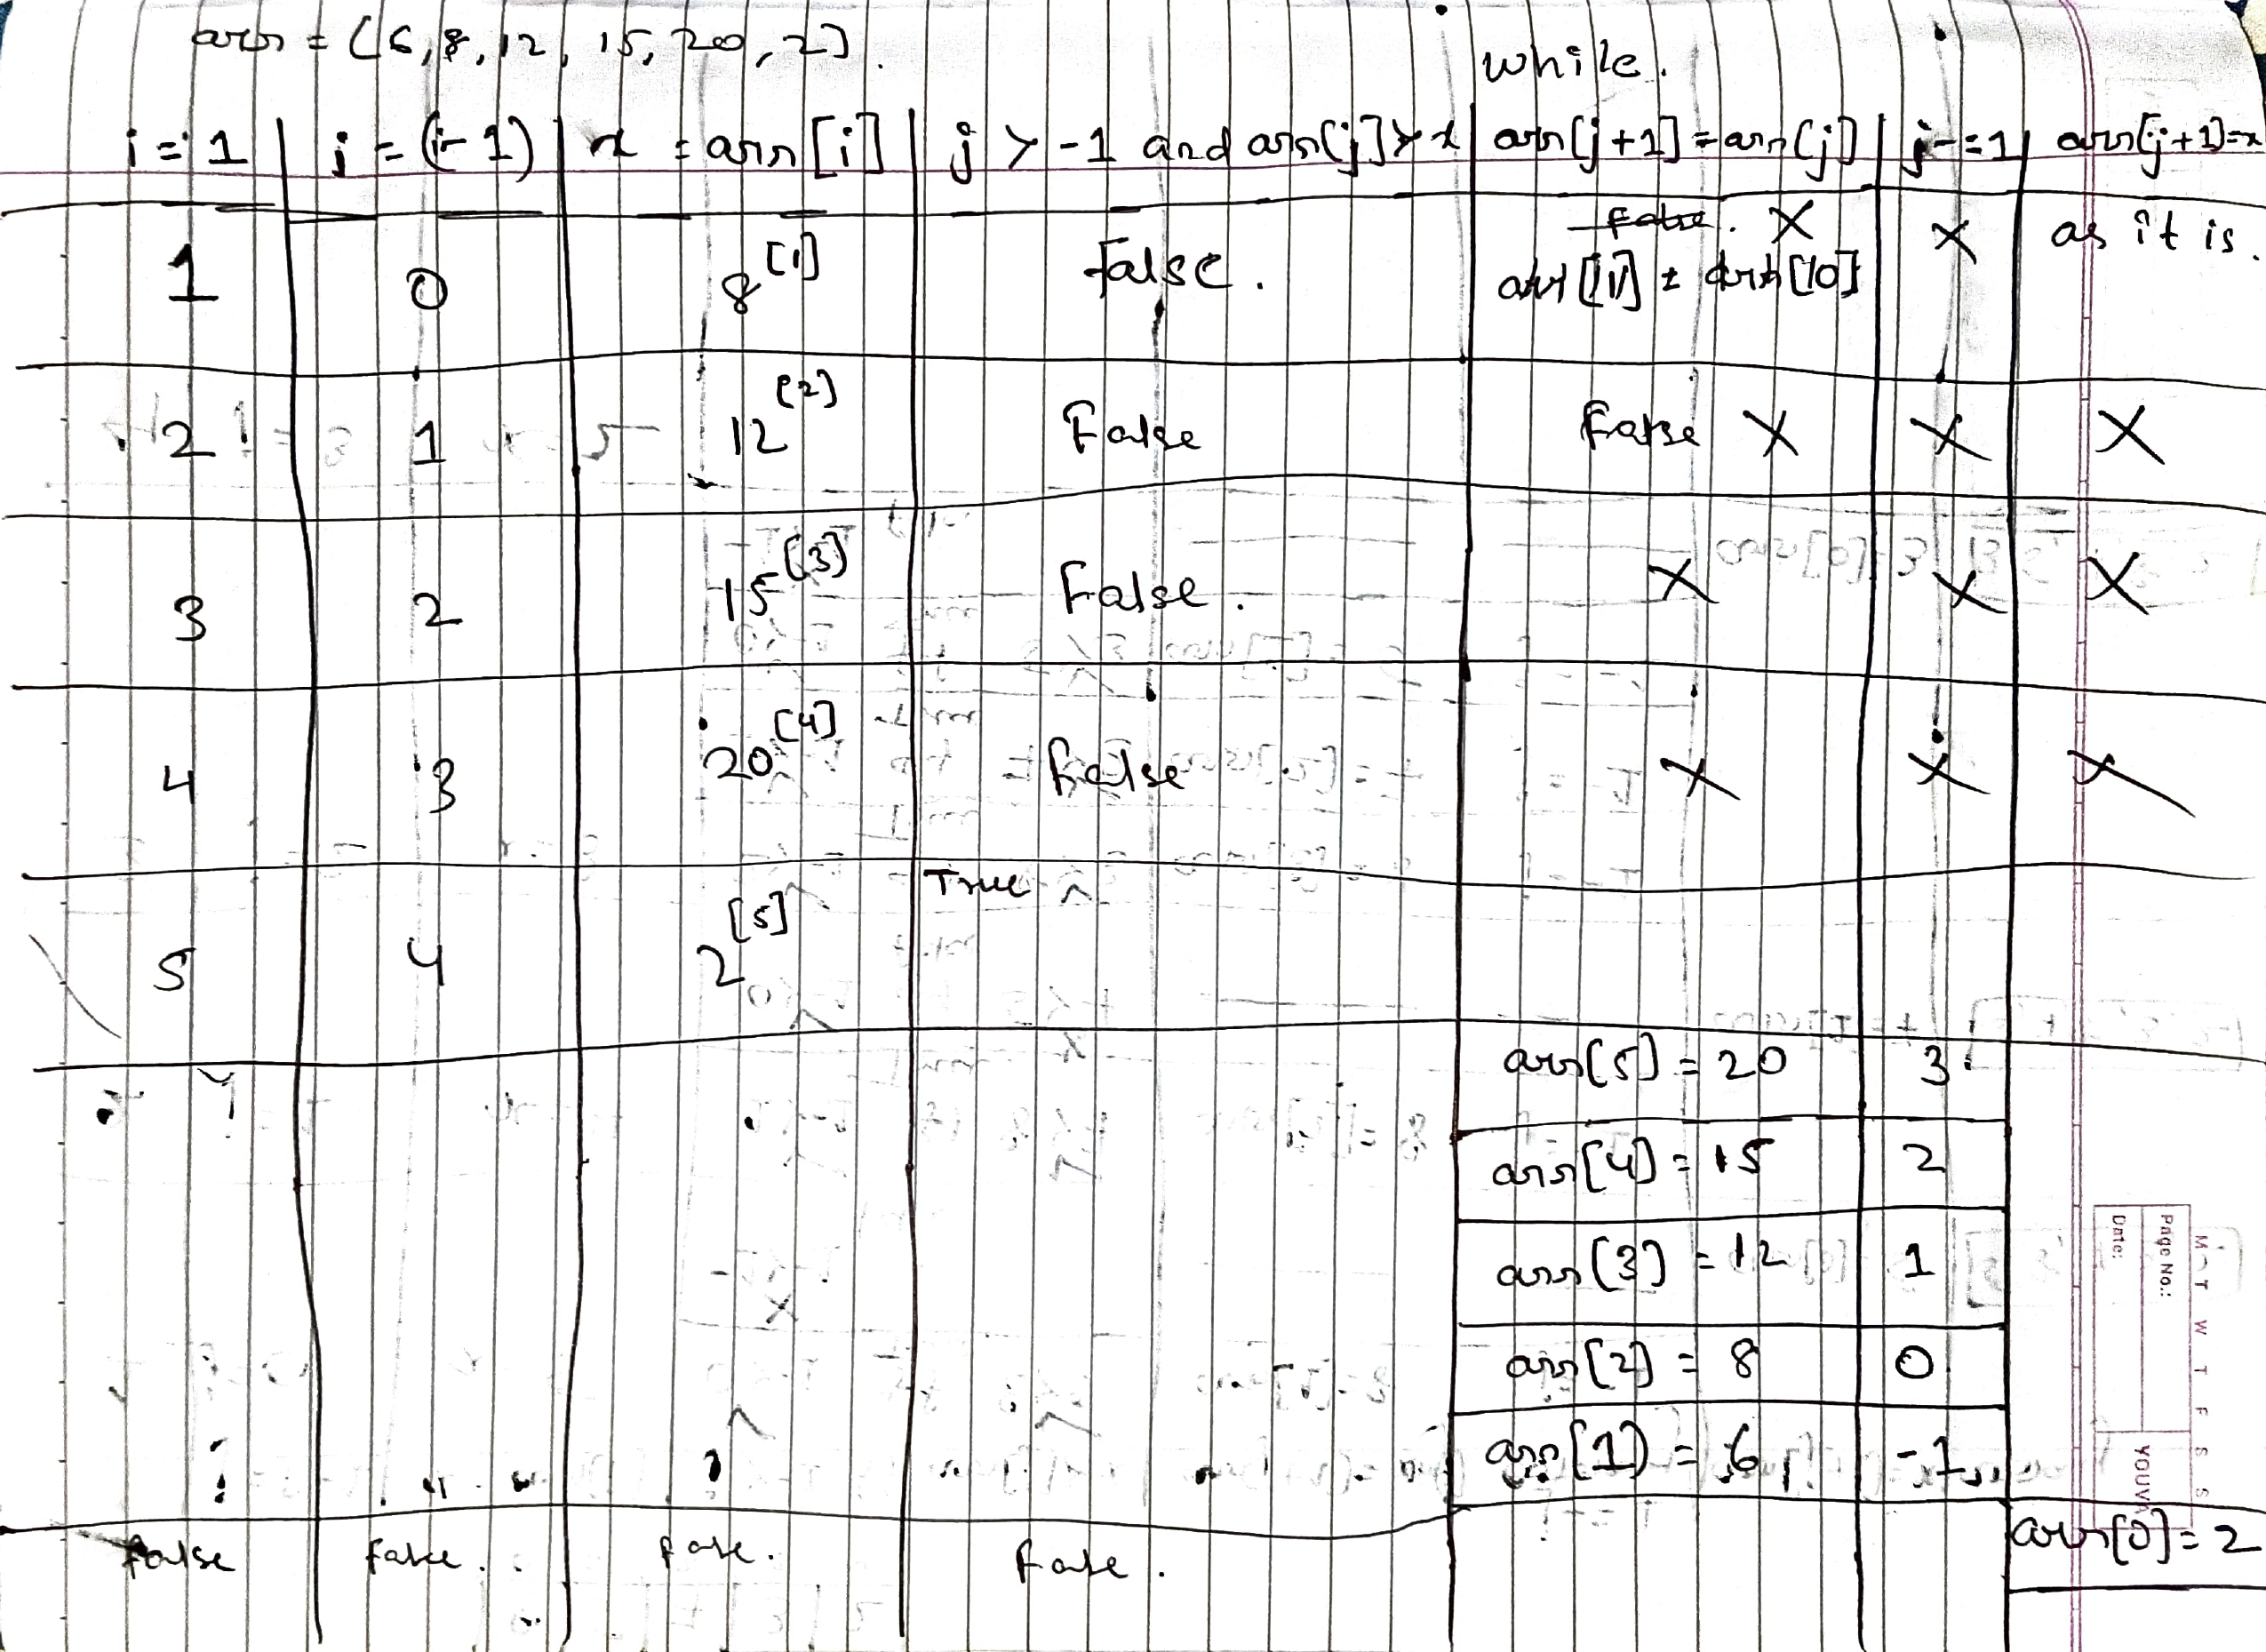 arr = [6, 8, 12, 15, 20, 2].
while.
i = 1 | j = (i-1) | x = arr[i] | j > -1 and arr[j] > x | arr[j+1] = arr[j] | j -= 1 | arr[j+1] = x
1 0 8 [1] False. False. X X as it is.
arr [1] = arr [0]
2 1 12 [2] False False X X X
3 2 15 [3] False. X X X
4 3 20 [4] False X X X
5 4 2 [5] True
arr[5] = 20 3
arr[4] = 15 2
arr[3] = 12 1
arr[2] = 8 0
arr[1] = 6 -1
False False. False. False. arr[0] = 2
Page No.:
Date:
M T W T F S S
YOUVA